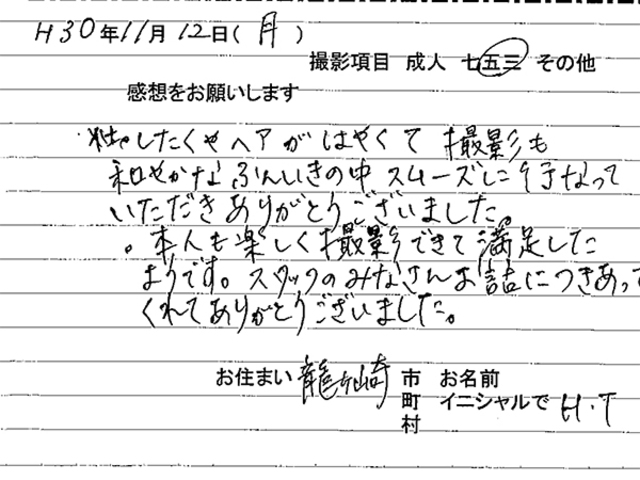 H30年11月12日(月)
撮影項目 成人 七五三 その他
感想をお願いします
したくやヘアがはやくて撮影も
和やかなふんいきの中スムーズに行なって
いただきありがとうございました。
。本人も楽しく撮影できて満足した
ようです。スタッフのみなさんお話につきあって
くれてありがとうございました。
お住まい 龍ヶ崎 市 お名前
町 イニシャルで H.T
村